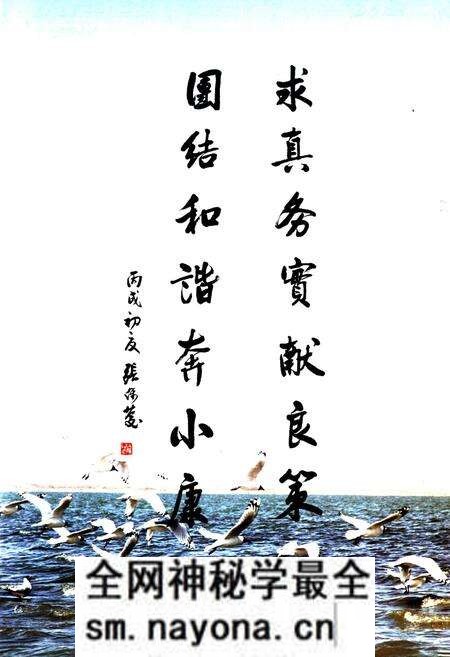 求真务實献良策
團结和谐奔小康
丙戌初夏
全网神秘学最全
sm.nayona.cn